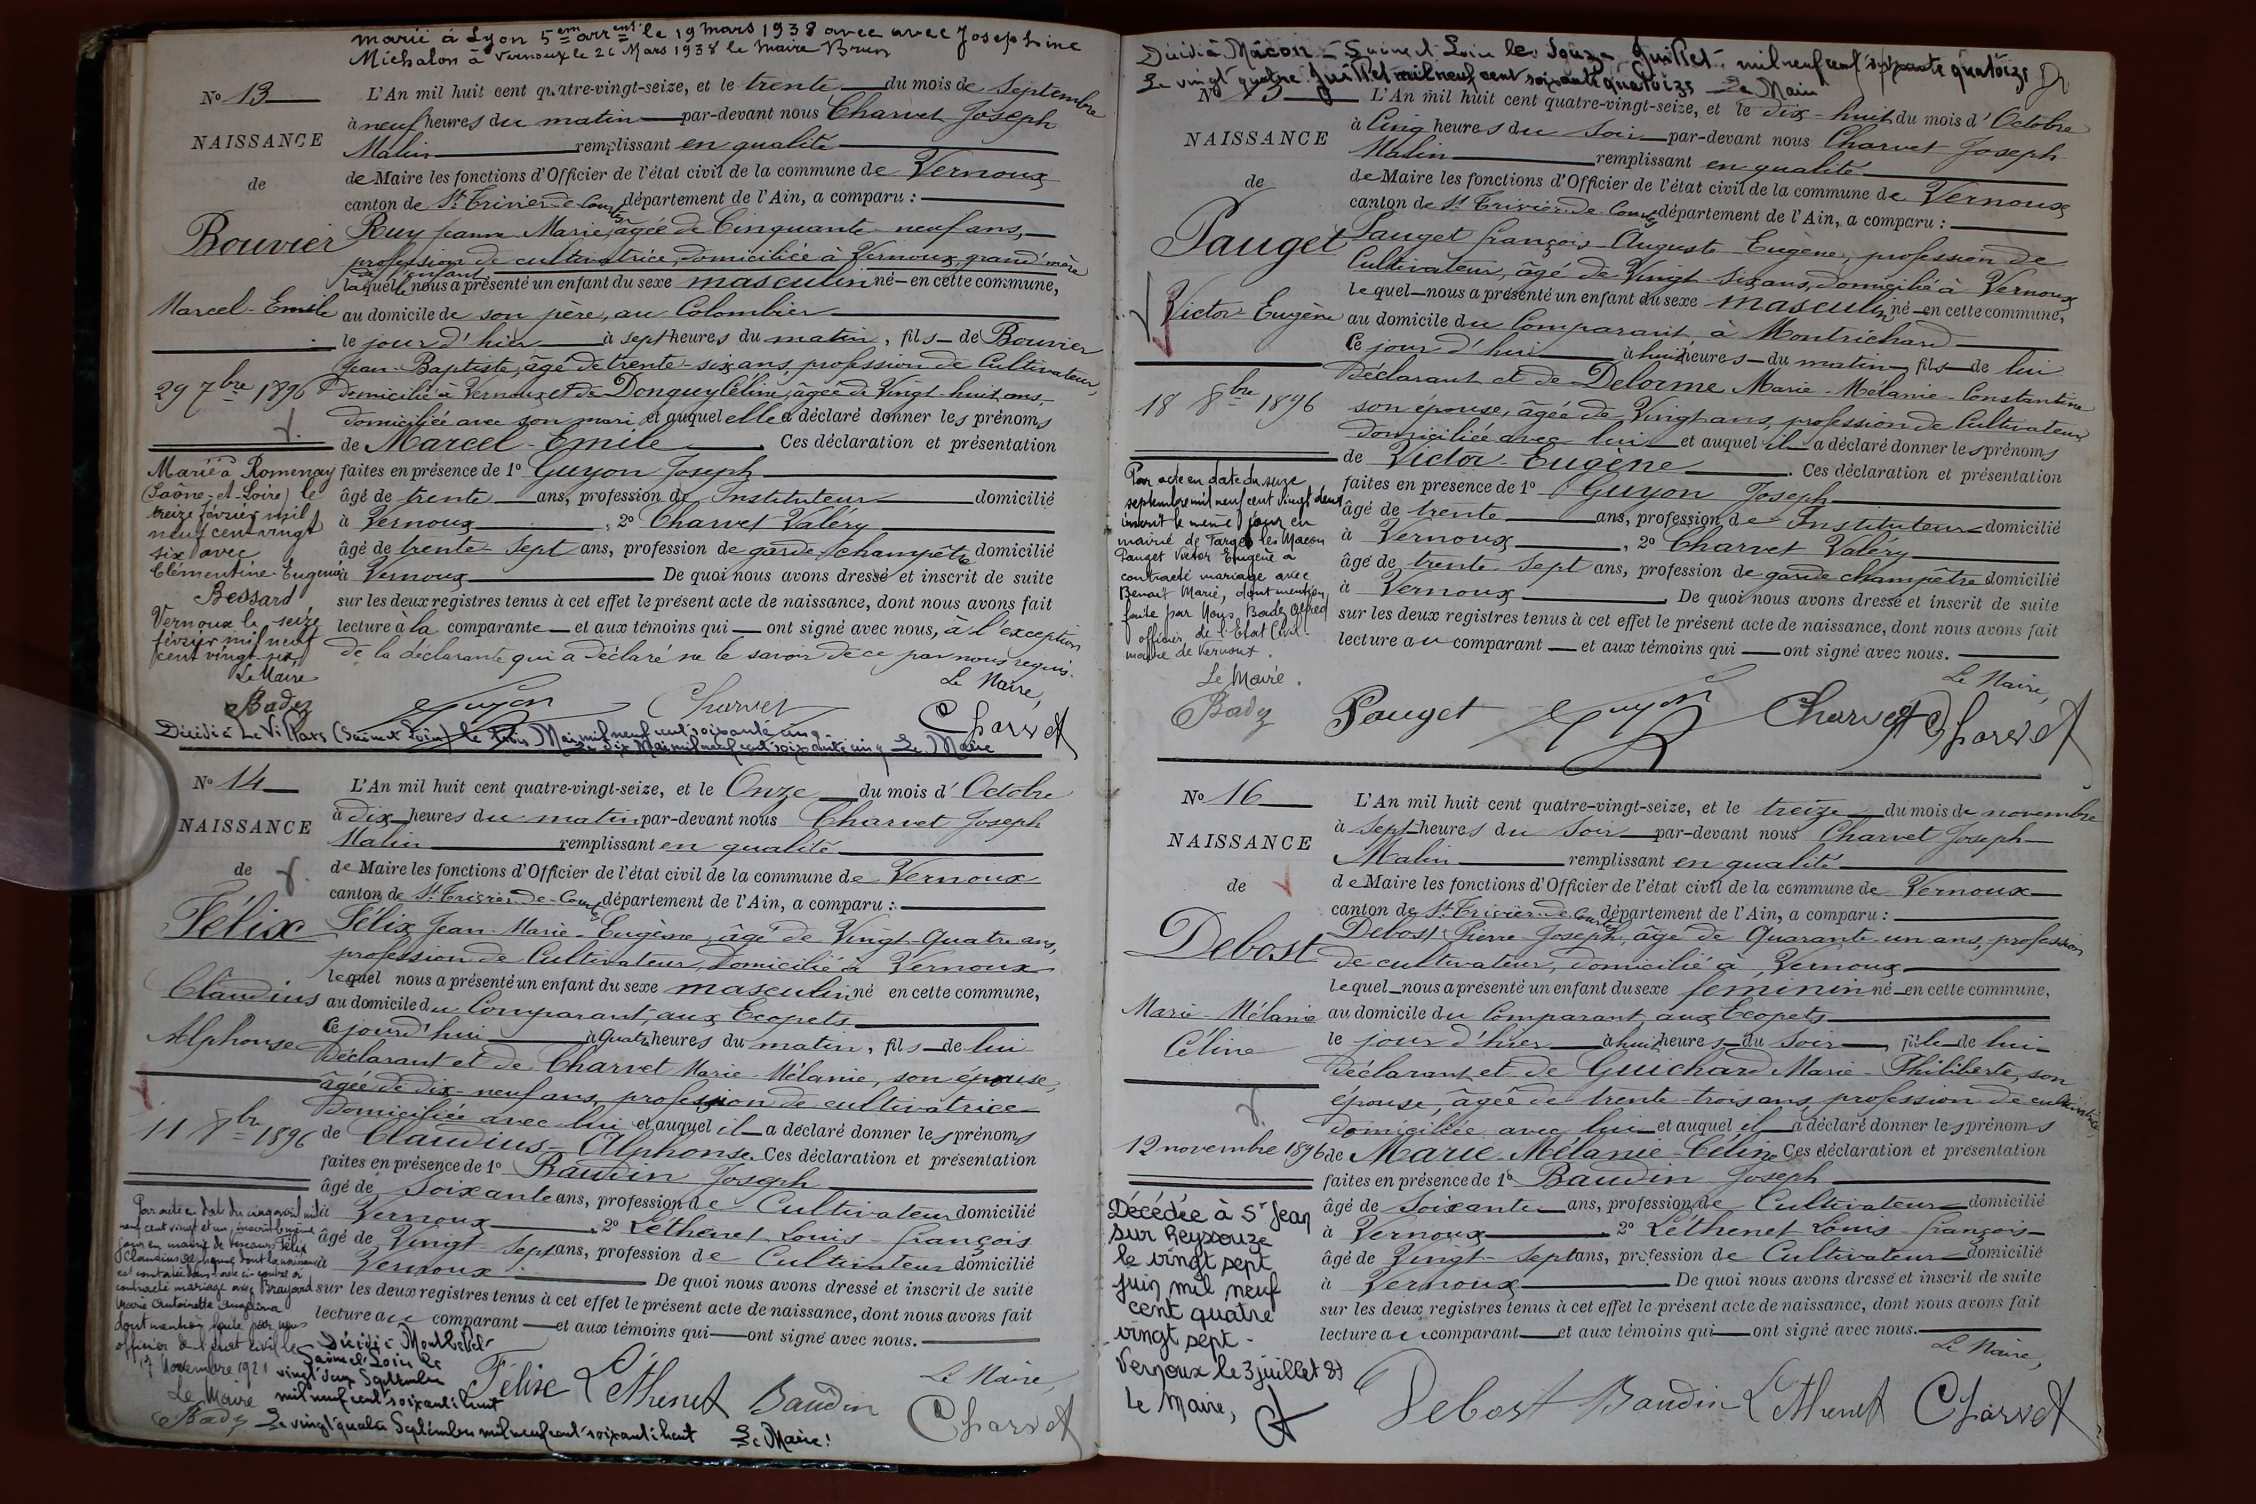 marié à Lyon 5em arrent le 19 mars 1938 avec avec Josephine
Michalon à Vernoux le 26 Mars 1938 le Maire Brun
No 13
NAISSANCE
de
Bouvier
Marcel-Emile
29 7bre 1896
L'An mil huit cent quatre-vingt-seize, et le trente du mois de Septembre
à neuf heures du matin par-devant nous Charvet Joseph
Malin remplissant en qualité
de Maire les fonctions d'Officier de l'état civil de la commune de Vernoux
canton de St Trivier-de-Courtes département de l'Ain, a comparu :
Ruy Jeanne Marie, âgée de Cinquante-neuf ans,
profession de cultivatrice, domiciliée à Vernoux, grand'mère
de l'enfant
laquelle nous a présenté un enfant du sexe masculin né en cette commune,
au domicile de son père, au Colombier
le jour d'hier à sept heures du matin, fils de Bouvier
Jean-Baptiste, âgé de trente-six ans, profession de Cultivateur,
domicilié à Vernoux et de Donguy Céline, âgée de Vingt-huit ans,
domiciliée avec son mari et auquel elle a déclaré donner les prénoms
de Marcel-Emile Ces déclaration et présentation
faites en présence de 1o Guyon Joseph
âgé de trente ans, profession de Instituteur domicilié
à Vernoux, 2o Charvet Valéry
âgé de trente-sept ans, profession de garde champêtre domicilié
à Vernoux De quoi nous avons dressé et inscrit de suite
sur les deux registres tenus à cet effet le présent acte de naissance, dont nous avons fait
lecture à la comparante et aux témoins qui ont signé avec nous, à l'exception
de la déclarante qui a déclaré ne le savoir de ce par nous requis.
Le Maire,
Guyon Charvet Charvet
Marié à Romenay
(Saône-et-Loire) le
treize février mil
neuf cent vingt
six avec
Clémentine-Eugenie
Bessard
Vernoux le seize
février mil neuf
cent vingt-six
Le Maire
Badez
Décédé à Le Villars (Saône et Loire) le trois Mai mil neuf cent soixante cinq
Le dix Mai mil neuf cent soixante cinq Le Maire
No 14
NAISSANCE
de
Félix
Claudius
Alphonse
11 8bre 1896
L'An mil huit cent quatre-vingt-seize, et le Onze du mois d'Octobre
à dix heures du matin par-devant nous Charvet Joseph
Malin remplissant en qualité
de Maire les fonctions d'Officier de l'état civil de la commune de Vernoux
canton de St Trivier-de-Courtes département de l'Ain, a comparu :
Félix Jean-Marie-Eugène, âgé de Vingt-Quatre ans,
profession de Cultivateur, domicilié à Vernoux
lequel nous a présenté un enfant du sexe masculin né en cette commune,
au domicile du Comparant, aux Ecopets
Ce jourd'hui à Quatre heures du matin, fils de lui
Déclarant et de Charvet Marie-Mélanie, son épouse,
âgée de dix-neuf ans, profession de cultivatrice
domiciliée avec lui et auquel il a déclaré donner les prénoms
de Claudius-Alphonse. Ces déclaration et présentation
faites en présence de 1o Baudin Joseph
âgé de Soixante ans, profession de Cultivateur domicilié
à Vernoux, 2o Léthenet Louis-françois
âgé de Vingt-Sept ans, profession de Cultivateur domicilié
à Vernoux. De quoi nous avons dressé et inscrit de suite
sur les deux registres tenus à cet effet le présent acte de naissance, dont nous avons fait
lecture au comparant et aux témoins qui ont signé avec nous.
Le Maire,
Félix Léthenet Baudin Charvet
Par acte en date du cinq avril mil
neuf cent vingt et un, inscrit le même
jour en mairie de Vescours Félix
Claudius Alphonse dont la naissance
est constatée dans l'acte ci-contre a
contracté mariage avec Brayard
Marie Antoinette
dont mention faite par nous
officier de l'état civil le
17 Novembre 1921
Le Maire
Badez
Décédé à Montbellet
Saône et Loire le
vingt deux Septembre
mil neuf cent soixante huit
Le vingt quatre Septembre mil neuf cent soixante huit Le Maire :
Décédé à Mâcon - Saône et Loire le douze Juillet mil neuf cent soixante quatorze
Le vingt quatre Juillet mil neuf cent soixante quatorze Le Maire
No 15
NAISSANCE
de
Pauget
Victor-Eugène
18 8bre 1896
L'An mil huit cent quatre-vingt-seize, et le dix-huit du mois d'Octobre
à Cinq heures du Soir par-devant nous Charvet Joseph
Malin remplissant en qualité
de Maire les fonctions d'Officier de l'état civil de la commune de Vernoux
canton de St Trivier-de-Courtes département de l'Ain, a comparu :
Pauget françois-Auguste-Eugène, profession de
Cultivateur, âgé de Vingt-six ans, domicilié à Vernoux
lequel nous a présenté un enfant du sexe masculin né en cette commune,
au domicile du Comparant, à Montrichard
Ce jour d'hui à huit heures du matin, fils de lui
Déclarant et de Delorme Marie-Mélanie-Constantine
son épouse, âgée de Vingt ans, profession de Cultivateur,
domiciliée avec lui et auquel il a déclaré donner les prénoms
de Victor-Eugène. Ces déclaration et présentation
faites en présence de 1o Guyon Joseph
âgé de trente ans, profession de Instituteur domicilié
à Vernoux, 2o Charvet Valéry
âgé de trente-sept ans, profession de garde champêtre domicilié
à Vernoux. De quoi nous avons dressé et inscrit de suite
sur les deux registres tenus à cet effet le présent acte de naissance, dont nous avons fait
lecture au comparant et aux témoins qui ont signé avec nous.
Le Maire,
Pauget Guyon Charvet Charvet
Par acte en date du seize
septembre mil neuf cent vingt deux
inscrit le meme jour en
mairie de Farges les Macon
Pauget Victor Eugène a
contracté mariage avec
Benoit Marie, dont mention
faite par Nous, Badez Alfred
officier de l'Etat Civil
maire de Vernoux.
Le Maire.
Badez
No 16
NAISSANCE
de
Debost
Marie-Mélanie
Céline
12 novembre 1896
L'An mil huit cent quatre-vingt-seize, et le treize du mois de novembre
à Sept heures du Soir par-devant nous Charvet Joseph
Malin remplissant en qualité
de Maire les fonctions d'Officier de l'état civil de la commune de Vernoux
canton de St Trivier-de-Courtes département de l'Ain, a comparu :
Debost Pierre-Joseph, âgé de Quarante-un ans, profession
de cultivateur, domicilié à Vernoux
lequel nous a présenté un enfant du sexe feminin né en cette commune,
au domicile du Comparant aux Ecopets
le jour d'hier à huit heures du Soir, fille de lui
Déclarant et de Guichard Marie-Philiberte, son
épouse, âgée de trente-trois ans, profession de cultivatrice,
domiciliée avec lui et auquel il a déclaré donner les prénoms
de Marie-Mélanie-Céline Ces déclaration et présentation
faites en présence de 1o Baudin Joseph
âgé de Soixante ans, profession de Cultivateur domicilié
à Vernoux 2o Léthenet Louis-françois
âgé de Vingt-Sept ans, profession de Cultivateur domicilié
à Vernoux De quoi nous avons dressé et inscrit de suite
sur les deux registres tenus à cet effet le présent acte de naissance, dont nous avons fait
lecture au comparant et aux témoins qui ont signé avec nous.
Le Maire,
Debost Baudin Léthenet Charvet
Décédée à St Jean
sur Reyssouze
le vingt sept
juin mil neuf
cent quatre
vingt sept -
Vernoux le 3 juillet 87
Le Maire,